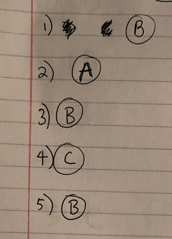 1) B
2) A
3) B
4) C
5) B